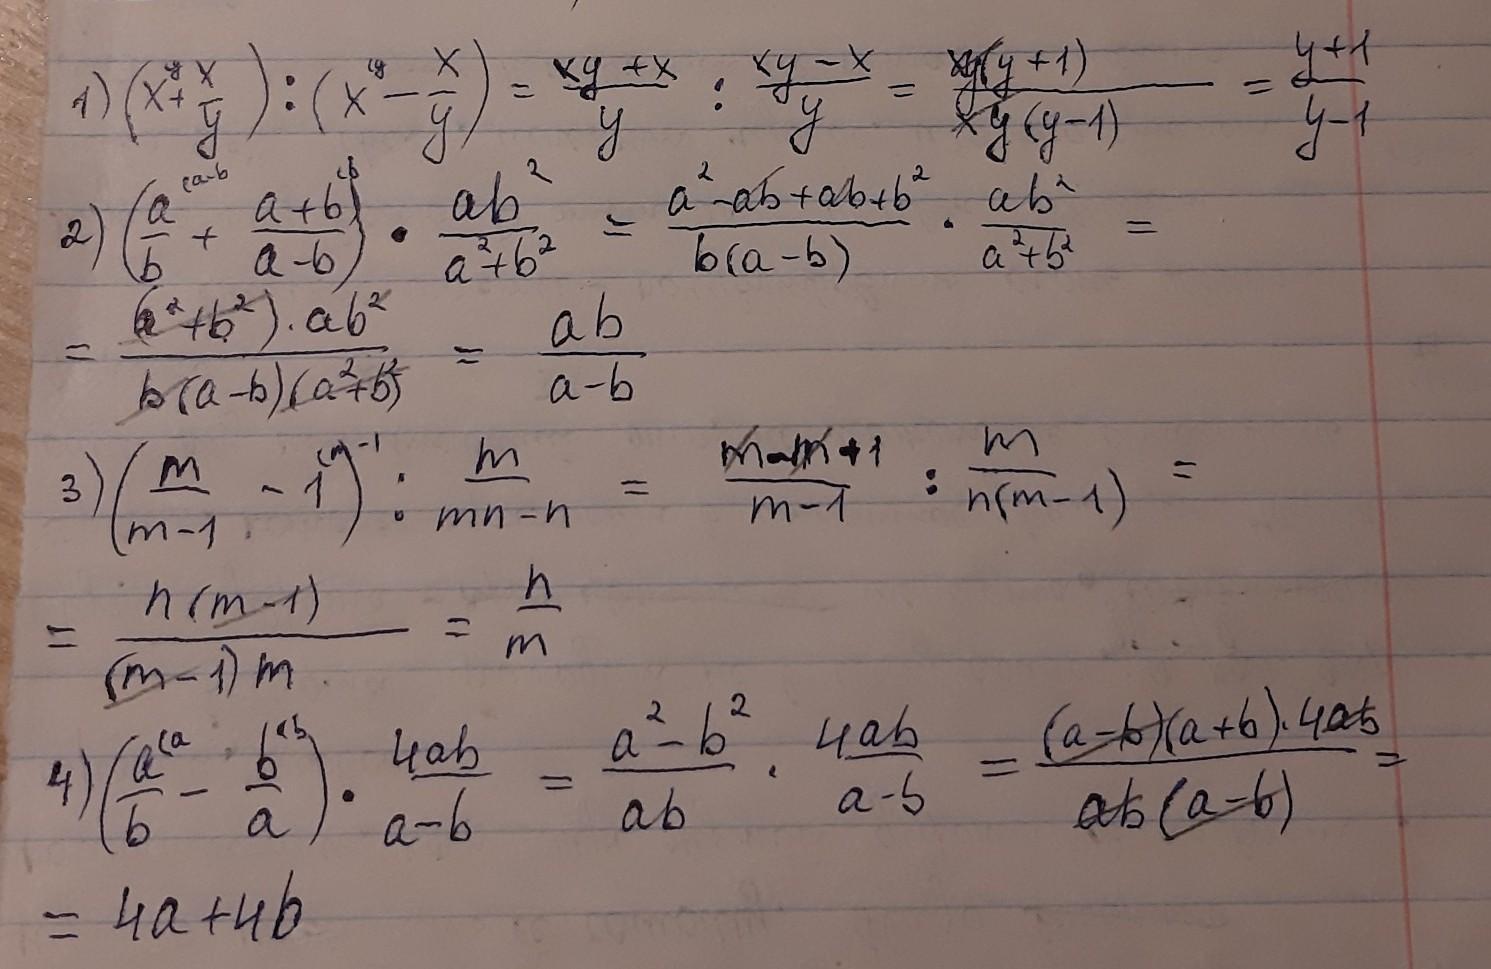 1) (x^(y + x/y) : (x^(y - x/y) = (xy + x)/y : (xy - x)/y = xy(y + 1)/(xy(y - 1)) = (y + 1)/(y - 1)
2) (a/b^(a-b + (a + b)/(a - b)^(b) · ab²/(a² + b²) = (a² - ab + ab + b²)/(b(a - b)) · ab²/(a² + b²) =
= (a² + b²) · ab²/(b(a - b)(a² + b²)) = ab/(a - b)
3) (m/(m - 1) - 1^(m-1) : m/(mn - n) = (m - m + 1)/(m - 1) : m/(n(m - 1)) =
= n(m - 1)/((m - 1)m) = n/m
4) (a/b^(a - b/a^(b) · 4ab/(a - b) = (a² - b²)/ab · 4ab/(a - b) = (a - b)(a + b) · 4ab/(ab(a - b)) =
= 4a + 4b